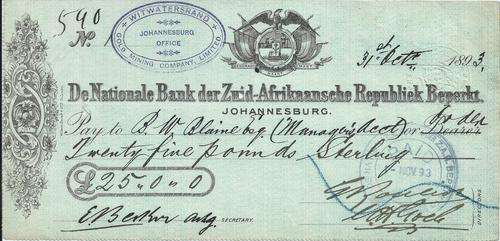 590
No.
WITWATERSRAND
JOHANNESBURG
OFFICE
GOLD MINING COMPANY, LIMITED
31st Octr 1893.
De Nationale Bank der Zuid-Afrikaansche Republiek Beperkt.
JOHANNESBURG.
Pay to B. W. Blaine Esq (Managers acct) or Bearer Order
Twenty five pounds Sterling
£25 " 0 " 0
NOV 93
E Becker actg. SECRETARY.
DIRECTORS